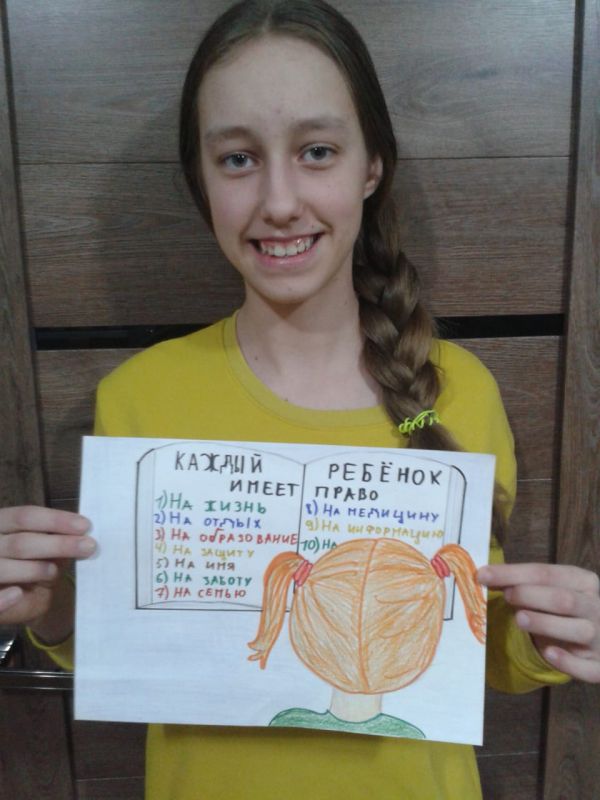 КАЖДЫЙ РЕБЁНОК
ИМЕЕТ ПРАВО
1) НА ЖИЗНЬ
2) НА ОТДЫХ
3) НА ОБРАЗОВАНИЕ
4) НА ЗАЩИТУ
5) НА ИМЯ
6) НА ЗАБОТУ
7) НА СЕМЬЮ
8) НА МЕДИЦИНУ
9) НА ИНФОРМАЦИЮ
10) НА